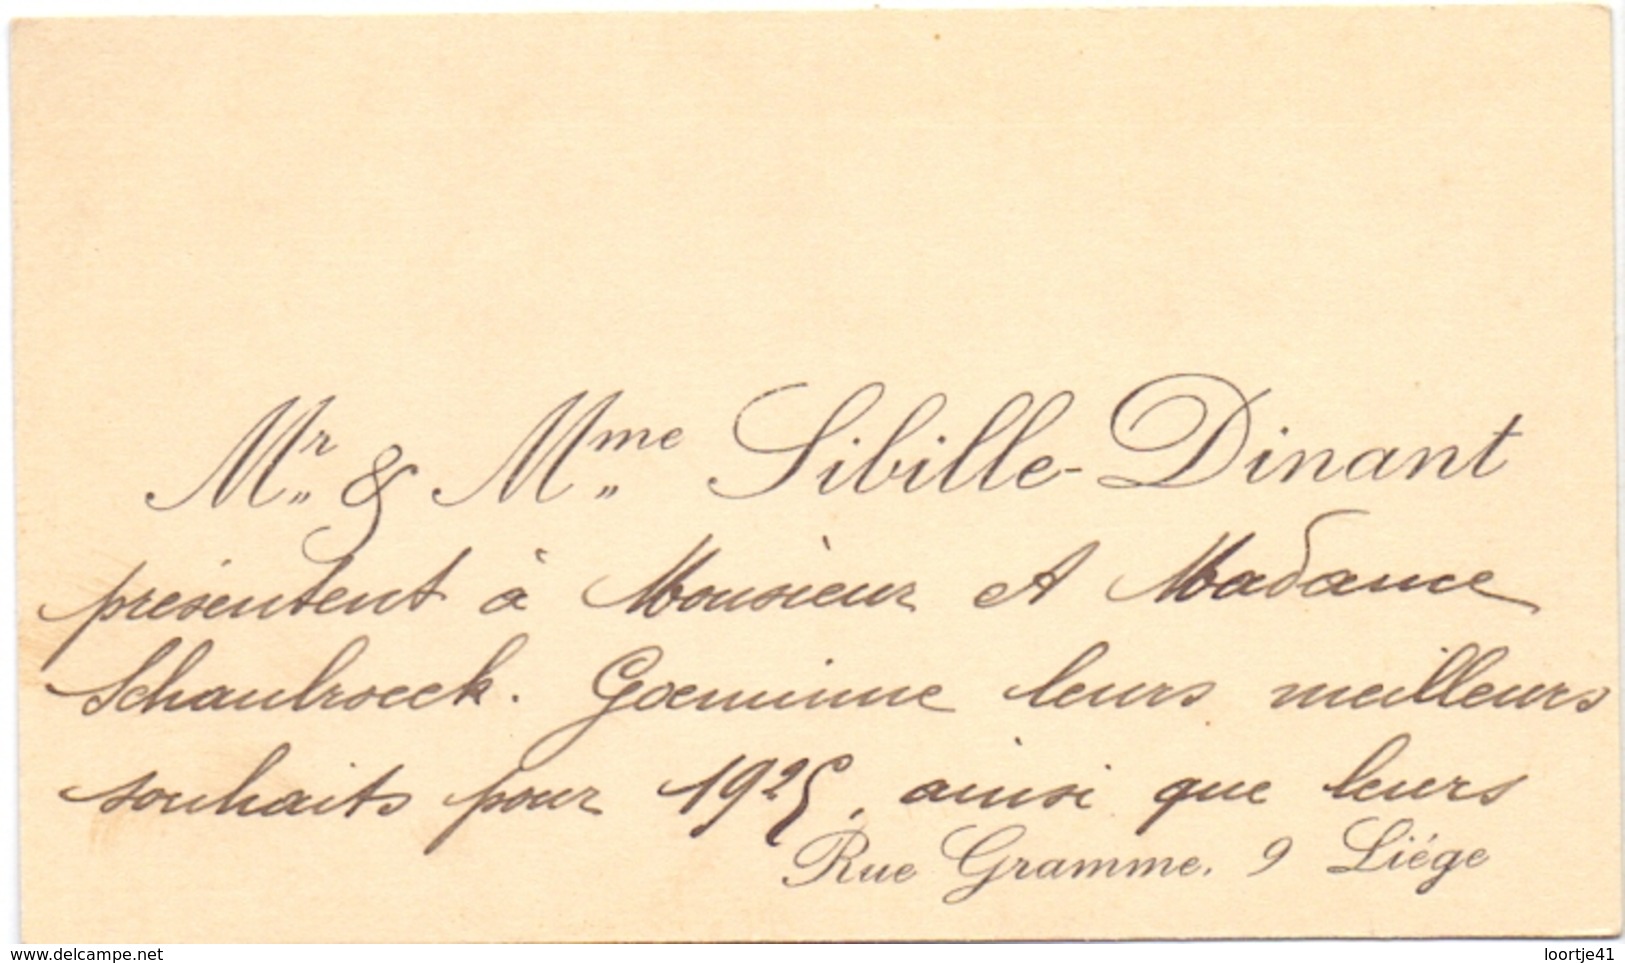 Mr & Mme Sibille-Dinant
présentent à Monsieur et Madame
Schaubroeck. Goeminne leurs meilleurs
souhaits pour 1925, ainsi que leurs
Rue Gramme, 9 Liége
delcampe.net
loortje41